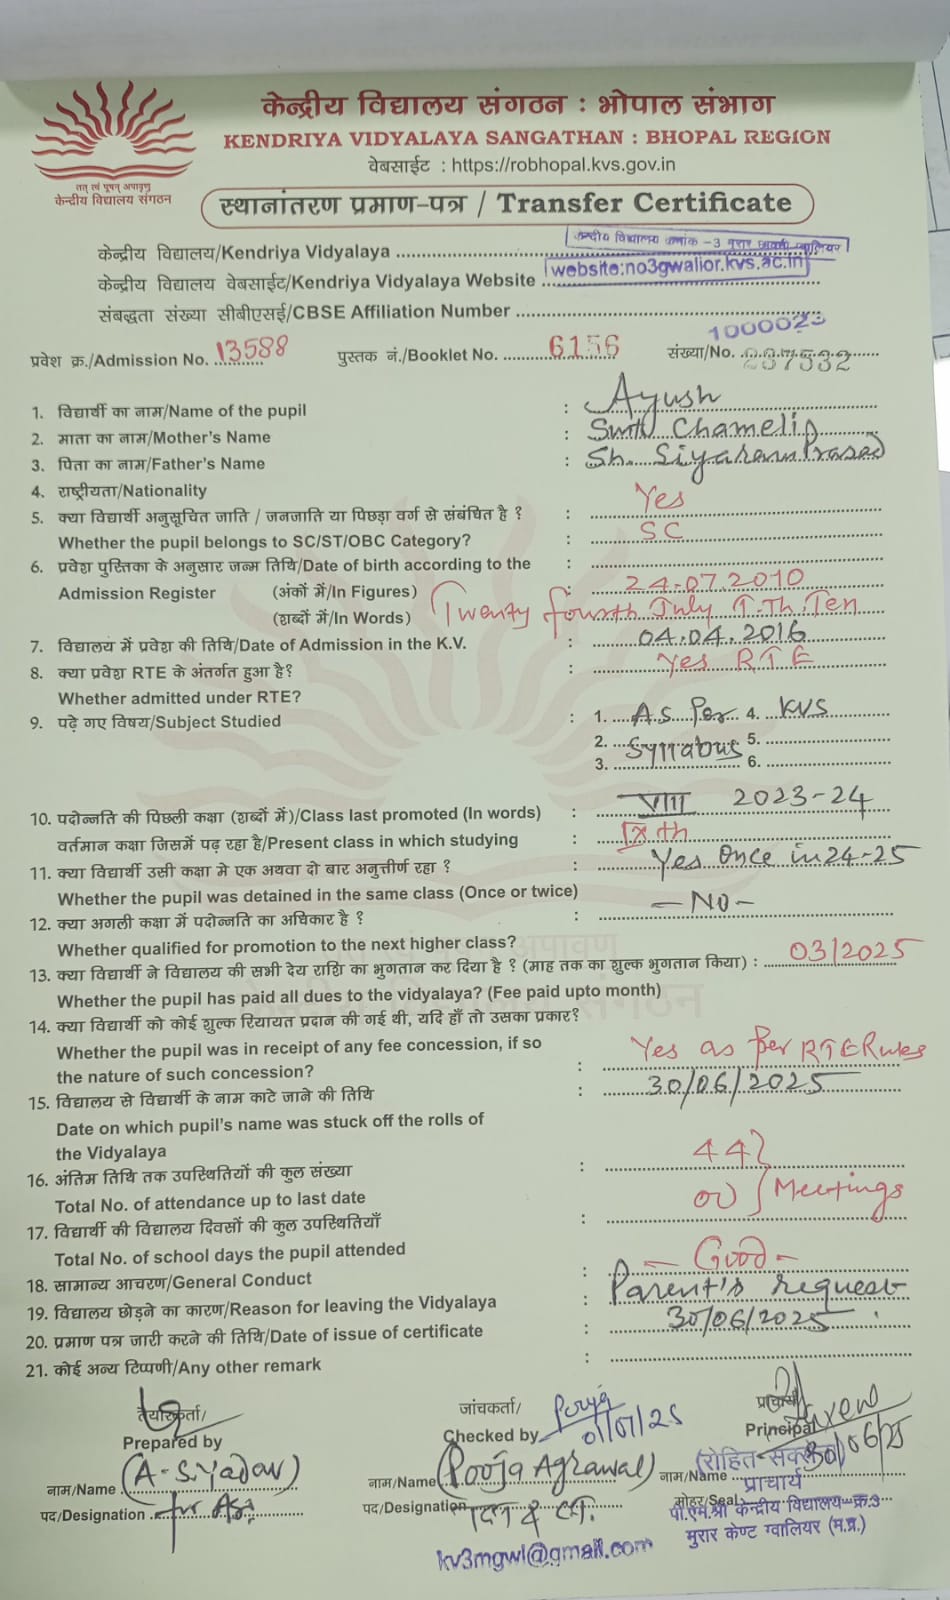 केन्द्रीय विद्यालय संगठन : भोपाल संभाग
KENDRIYA VIDYALAYA SANGATHAN : BHOPAL REGION
वेबसाईट : https://robhopal.kvs.gov.in
तत् त्वं पूषन् अपावृणु
केन्द्रीय विद्यालय संगठन
स्थानांतरण प्रमाण-पत्र / Transfer Certificate
केन्द्रीय विद्यालय/Kendriya Vidyalaya केन्द्रीय विद्यालय क्रमांक -3 मुरार छावनी ग्वालियर
केन्द्रीय विद्यालय वेबसाईट/Kendriya Vidyalaya Website website:no3gwalior.kvs.ac.in
संबद्धता संख्या सीबीएसई/CBSE Affiliation Number
प्रवेश क्र./Admission No. 13588 पुस्तक नं./Booklet No. 6156 संख्या/No.
1. विद्यार्थी का नाम/Name of the pupil : Ayush
2. माता का नाम/Mother's Name : Smt Chameli
3. पिता का नाम/Father's Name : Sh. Siyaram Prasad
4. राष्ट्रीयता/Nationality
5. क्या विद्यार्थी अनुसूचित जाति / जनजाति या पिछड़ा वर्ग से संबंधित है ? : Yes
Whether the pupil belongs to SC/ST/OBC Category? : SC
6. प्रवेश पुस्तिका के अनुसार जन्म तिथि/Date of birth according to the :
Admission Register (अंकों में/In Figures) : 24.07.2010
(शब्दों में/In Words) Twenty fourth July T.Th.Ten
7. विद्यालय में प्रवेश की तिथि/Date of Admission in the K.V. : 04.04.2016
8. क्या प्रवेश RTE के अंतर्गत हुआ है? : Yes RTE
Whether admitted under RTE?
9. पढ़े गए विषय/Subject Studied : 1. As Per 4. KVS
2. Syllabus 5.
3. 6.
10. पदोन्नति की पिछली कक्षा (शब्दों में)/Class last promoted (In words) : VIII 2023-24
वर्तमान कक्षा जिसमें पढ़ रहा है/Present class in which studying : IXth
11. क्या विद्यार्थी उसी कक्षा मे एक अथवा दो बार अनुत्तीर्ण रहा ? : Yes Once in 24-25
Whether the pupil was detained in the same class (Once or twice)
12. क्या अगली कक्षा में पदोन्नति का अधिकार है ? : - NO -
Whether qualified for promotion to the next higher class?
13. क्या विद्यार्थी ने विद्यालय की सभी देय राशि का भुगतान कर दिया है ? (माह तक का शुल्क भुगतान किया) : 03/2025
Whether the pupil has paid all dues to the vidyalaya? (Fee paid upto month)
14. क्या विद्यार्थी को कोई शुल्क रियायत प्रदान की गई थी, यदि हाँ तो उसका प्रकार?
Whether the pupil was in receipt of any fee concession, if so
the nature of such concession? : Yes as per RTE Rules
15. विद्यालय से विद्यार्थी के नाम काटे जाने की तिथि : 30/06/2025
Date on which pupil's name was stuck off the rolls of
the Vidyalaya
16. अंतिम तिथि तक उपस्थितियों की कुल संख्या : 44
Total No. of attendance up to last date Meetings
17. विद्यार्थी की विद्यालय दिवसों की कुल उपस्थितियाँ :
Total No. of school days the pupil attended
18. सामान्य आचरण/General Conduct : - Good -
19. विद्यालय छोड़ने का कारण/Reason for leaving the Vidyalaya : Parent's request
20. प्रमाण पत्र जारी करने की तिथि/Date of issue of certificate : 30/06/2025
21. कोई अन्य टिप्पणी/Any other remark :
तैयारकर्ता/ जांचकर्ता/ Pooja प्राचार्य
Prepared by Checked by 01/07/25 Principal 30/06/25
नाम/Name (A. S. Yadav) नाम/Name (Pooja Agrawal) नाम/Name
प्राचार्य
पद/Designation पद/Designation TGT & CT. मोहर/Seal
पी.एम.श्री केन्द्रीय विद्यालय क्र.3
मुरार केण्ट ग्वालियर (म.प्र.)
kv3mgwl@gmail.com